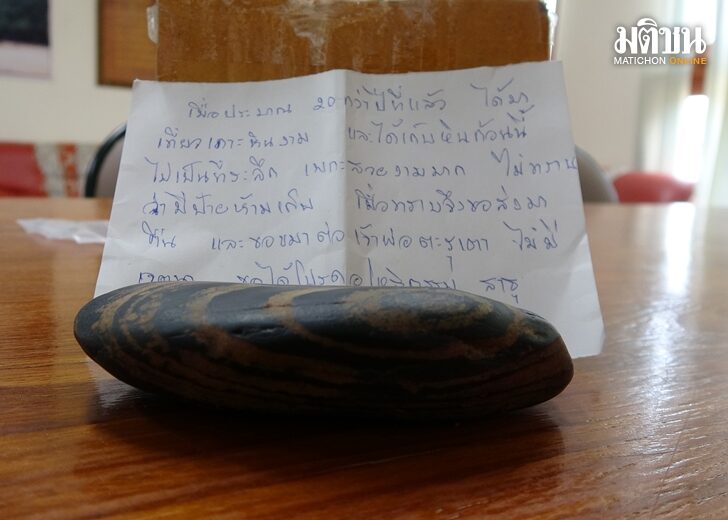 มติชน
MATICHON ONLINE
เมื่อประมาณ 20 กว่าปีที่แล้ว ได้มา
เที่ยวเกาะหินงาม และได้เก็บหินก้อนนี้
ไปเป็นที่ระลึก เพราะสวยงามมาก ไม่ทราบ
ว่ามีป้ายห้ามเก็บ เมื่อทราบจึงขอส่งมา
คืน และขอขมาต่อเจ้าพ่อตะรุเตา ไม่มี
เจตนา ขอได้โปรดอโหสิกรรม สาธุ